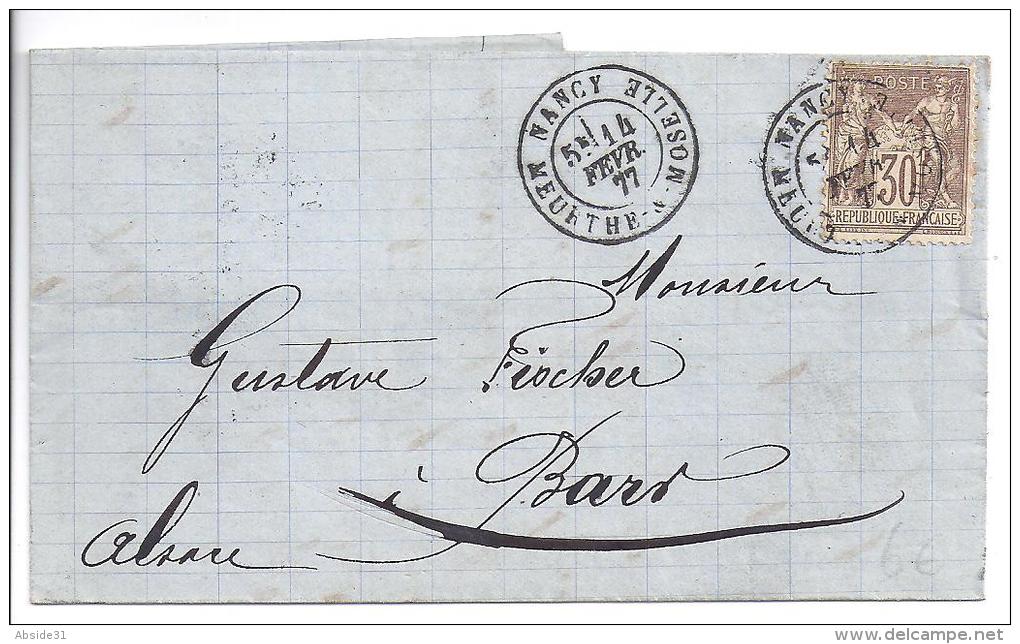 NANCY
MEURTHE-&-MOSELLE
5E 14
FEVR.
77
NANCY
14
POSTE
30
REPUBLIQUE·FRANCAISE
Monsieur
Gustave Fischer
à Barr
Alsace
6€
Abside31
www.delcampe.net